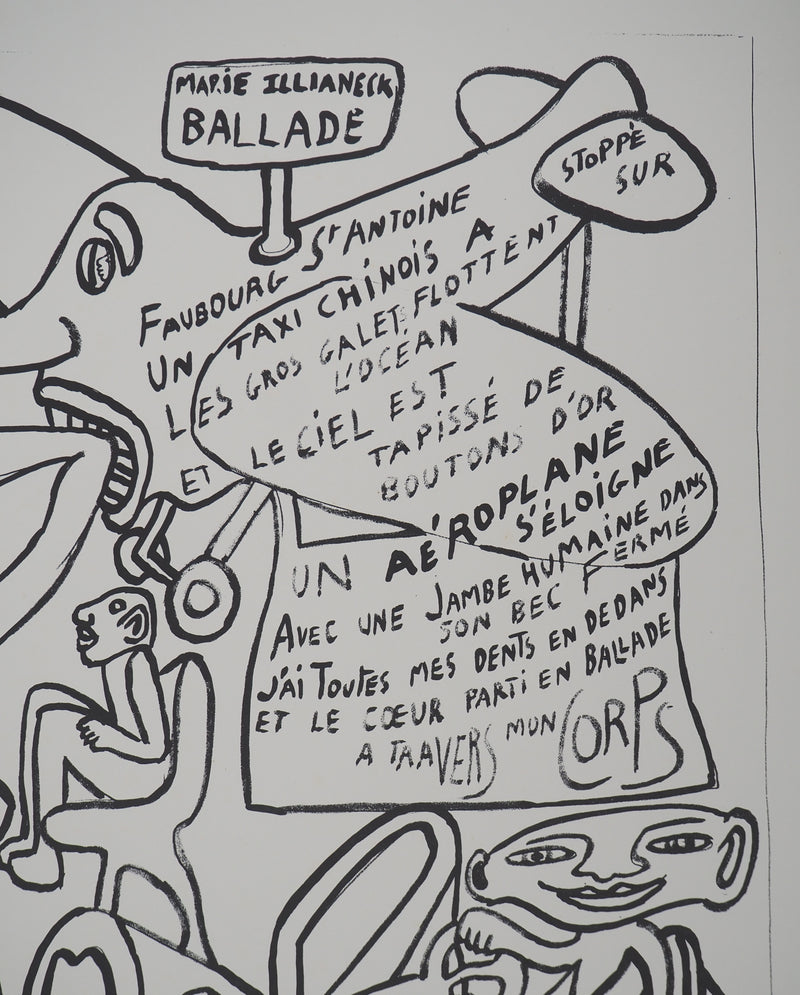 MARIE ILLIANECK
BALLADE
STOPPÉ
SUR
FAUBOURG St ANTOINE
UN TAXI CHINOIS A
LES GROS GALETS FLOTTENT
L'OCÉAN
ET LE CIEL EST
TAPISSÉ DE
BOUTONS D'OR
UN AÉROPLANE
S'ÉLOIGNE
AVEC UNE JAMBE HUMAINE DANS
SON BEC FERMÉ
J'AI TOUTES MES DENTS EN DEDANS
ET LE CŒUR PARTI EN BALLADE
A TRAVERS MON CORPS